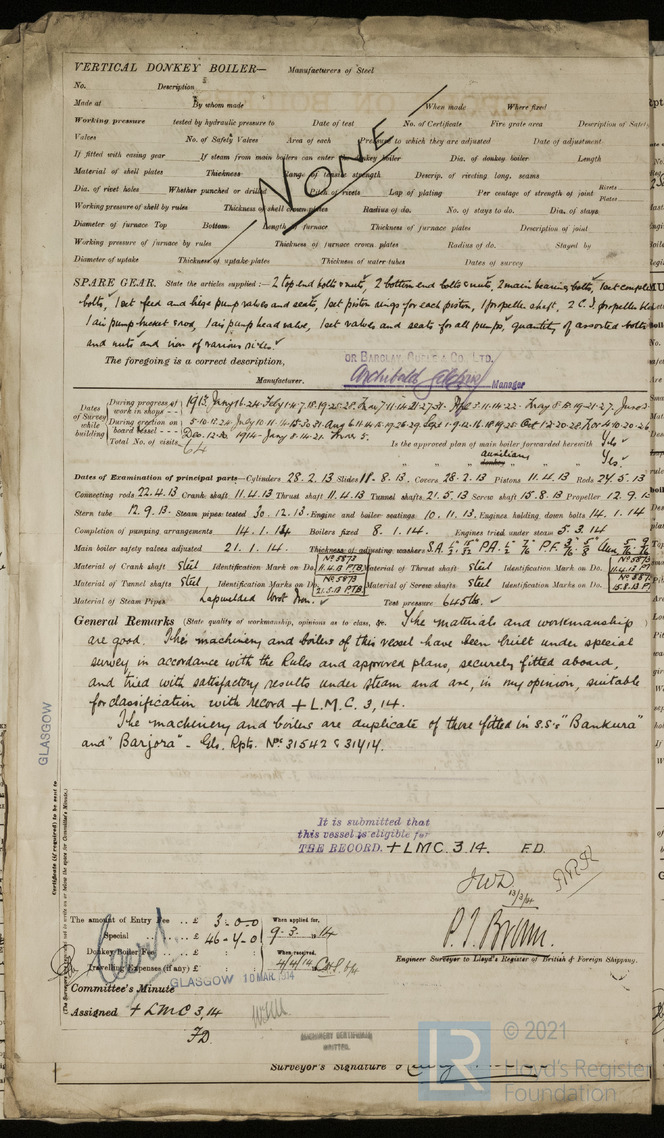 VERTICAL DONKEY BOILER— Manufacturers of Steel
No. Description
Made at By whom made When made Where fixed
Working pressure tested by hydraulic pressure to Date of test No. of Certificate Fire grate area Description of Safety
Valves No. of Safety Valves Area of each Pressure to which they are adjusted Date of adjustment
If fitted with easing gear If steam from main boilers can enter the donkey boiler Dia. of donkey boiler Length
Material of shell plates Thickness Range of tensile strength Descrip. of circling long. seams
Dia. of rivet holes Whether punched or drilled Pitch of rivets Lap of plating Per centage of strength of joint Rivets Plates
Working pressure of shell by rules Thickness of shell crown plates Radius of do. No. of stays to do. Dia. of stays
Diameter of furnace Top Bottom Length of furnace Thickness of furnace plates Description of joint
Working pressure of furnace by rules Thickness of furnace crown plates Radius of do. Stayed by
Diameter of uptake Thickness of uptake plates Thickness of water tubes Dates of survey
NONE
SPARE GEAR. State the articles supplied:— 2 top end bolts & nuts, 2 bottom end bolts & nuts, 2 main bearing bolts, 1 set coupling
bolts, 1 set feed and bilge pump valves and seats, 1 set piston rings for each piston, 1 propeller shaft, 2 C.I. propeller bla
1 air pump bucket & rod, 1 air pump head valve, 1 set valves and seats for all pumps, quantity of assorted bolts
and nuts and iron of various sizes.
The foregoing is a correct description,
OR BARCLAY, CURLE & CO. LTD.
Manufacturer. Archibald Gilchrist Manager
Dates of Survey while building
During progress of work in shops - -
During erection on board vessel - - -
Total No. of visits 64
Is the approved plan of main boiler forwarded herewith Yes
" " " auxiliary donkey " " " Yes
Dates of Examination of principal parts—Cylinders 28.2.13 Slides 11.8.13. Covers 28.2.13 Pistons 11.4.13 Rods 24.5.13
Connecting rods 22.4.13 Crank shaft 11.4.13 Thrust shaft 11.4.13 Tunnel shafts 21.5.13 Screw shaft 15.8.13 Propeller 12.9.13
Stern tube 12.9.13. Steam pipes tested 30.12.13. Engine and boiler seatings 10.11.13. Engines holding down bolts 14.1.14
Completion of pumping arrangements 14.1.14 Boilers fixed 8.1.14. Engines tried under steam 5.3.14
Main boiler safety valves adjusted 21.1.14. Thickness of adjusting washers
Material of Crank shaft Steel Identification Mark on Do. No 5873 11.4.13 PTB Material of Thrust shaft Steel Identification Mark on Do. No 5873 11.4.13 PT
Material of Tunnel shafts Steel Identification Marks on Do. No 5873 21.5.13 PTB Material of Screw shafts Steel Identification Marks on Do. No 587 15.8.13 PT
Material of Steam Pipes Lapwelded Wrot Iron. Test pressure 645 lbs.
General Remarks (State quality of workmanship, opinions as to class, &c. The materials and workmanship
are good. This machinery and boilers of this vessel have been built under special
survey in accordance with the Rules and approved plans, securely fitted aboard,
and tried with satisfactory results under steam and are, in my opinion, suitable
for classification with record + L.M.C. 3,14.
The machinery and boilers are duplicate of those fitted in S.S.s "Bankura"
and "Barjora" - Gls. Rpts. Nos 31542 & 31414.
GLASGOW
Certificate (if required) to be sent to
(The Surveyors are requested not to write on or below the space for Committee's Minute.)
It is submitted that
this vessel is eligible for
THE RECORD. + LMC 3.14. F.D.
JWD
13/3/14
The amount of Entry Fee .. £ 3-0-0 When applied for,
Special .. .. £ 46-4-0 9-3-1914
Donkey Boiler Fee .. .. £ : : When received,
Travelling Expenses (if any) £ : : 4/4/14
P. T. Brown.
Engineer Surveyor to Lloyd's Register of British & Foreign Shipping.
Committee's Minute GLASGOW 10 MAR 1914
Assigned + LMC 3,14
FD.
MACHINERY CERTIFICATE
WRITTEN.
Surveyor's Signature
LR © 2021
Lloyd's Register
Foundation